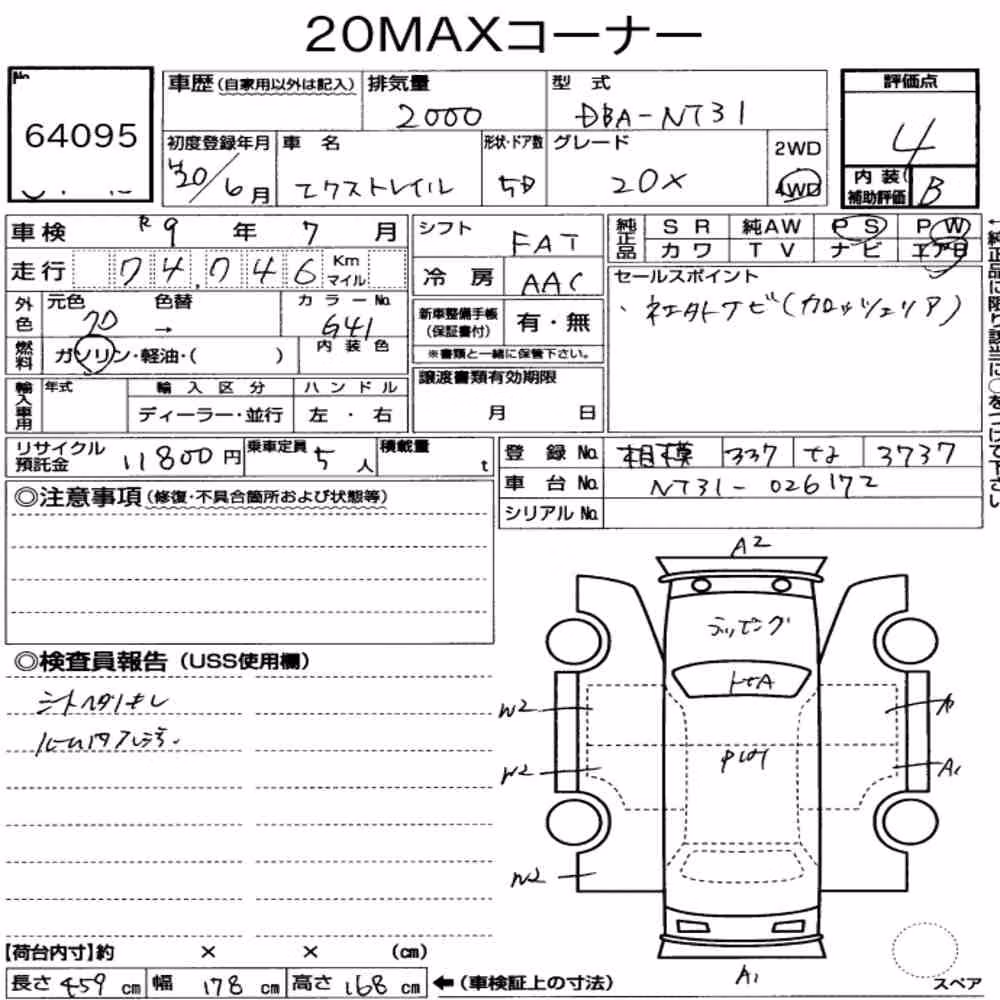 20MAXコーナー
No.
64095
車歴(自家用以外は記入) 排気量 型 式 評価点
2000 DBA-NT31 4
初度登録年月 車 名 形状・ドア数 グレード 2WD
H20/6月 エクストレイル 5D 20X 4WD
内 装 補助評価 B
車検 R9 年 7 月 シフト FAT 純正品 SR 純AW PS PW
カワ TV ナビ エアB
走行 74,746 Km マイル 冷 房 AAC
セールスポイント
・社外ナビ(カロッツェリア)
外色 元色 色替 カラーNo.
20 → G41
新車整備手帳(保証書付) 有・無
※書類と一緒に保管下さい。
燃料 ガソリン・軽油・( ) 内装色
輸入車用 年式 輸 入 区 分 ハ ン ド ル
ディーラー・並行 左 ・ 右
譲渡書類有効期限
月 日
←純正品に限り該当に○をつけて下さい
リサイクル預託金 11800円 乗車定員 5人 積載量 t
登 録 No. 相模 337 な 3737
車 台 No. NT31-026172
シリアル No.
◎注意事項(修復・不具合箇所および状態等)
◎検査員報告(USS使用欄)
A2
ラッピング
W2
W2
A1
W2
A1
スペア
【荷台内寸】約 × × (cm)
長さ 459 cm 幅 178 cm 高さ 168 cm ←(車検証上の寸法)